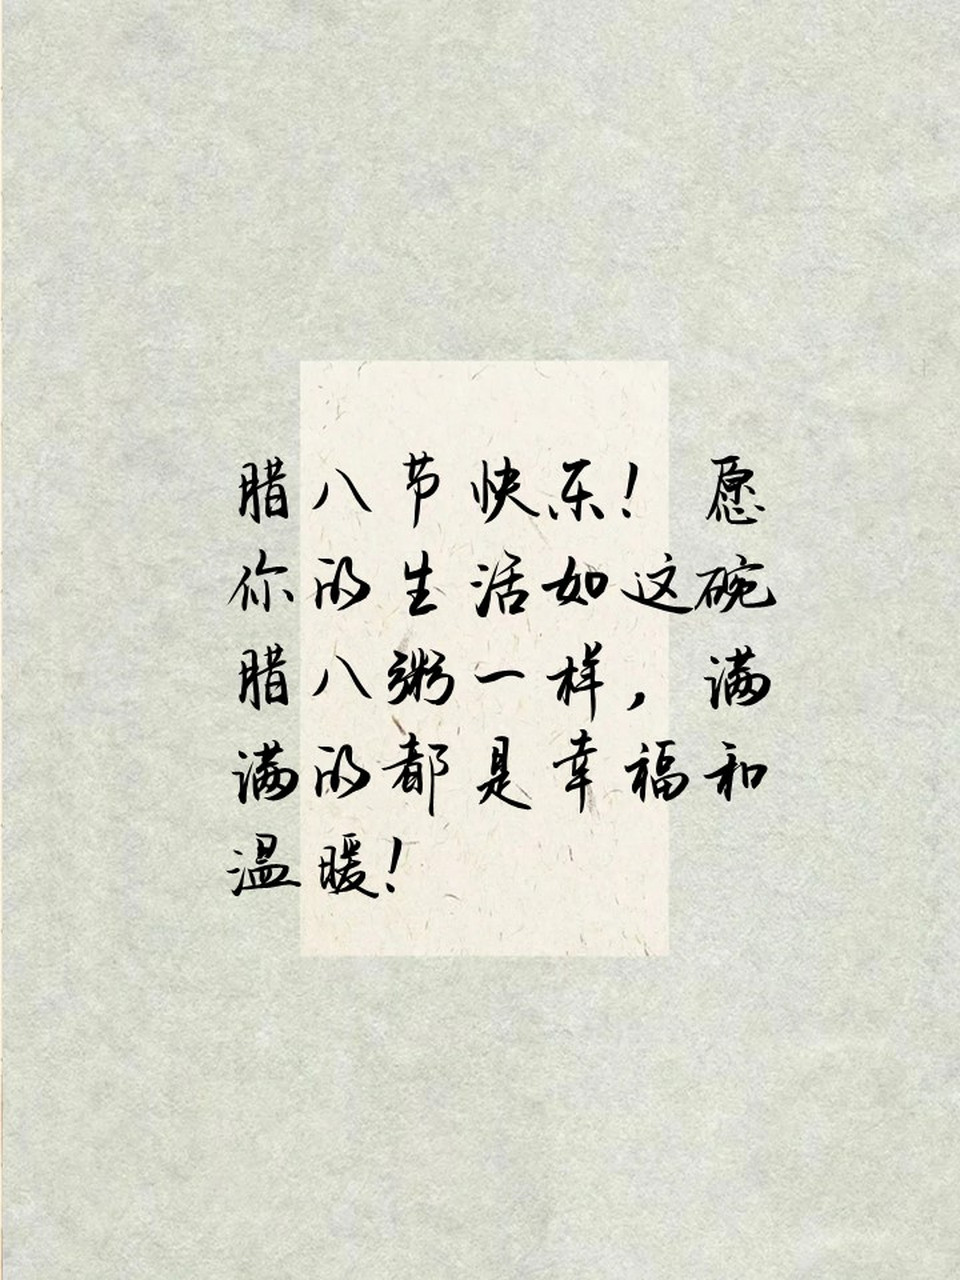 腊八节快乐！愿
你的生活如这碗
腊八粥一样，满
满的都是幸福和
温暖！